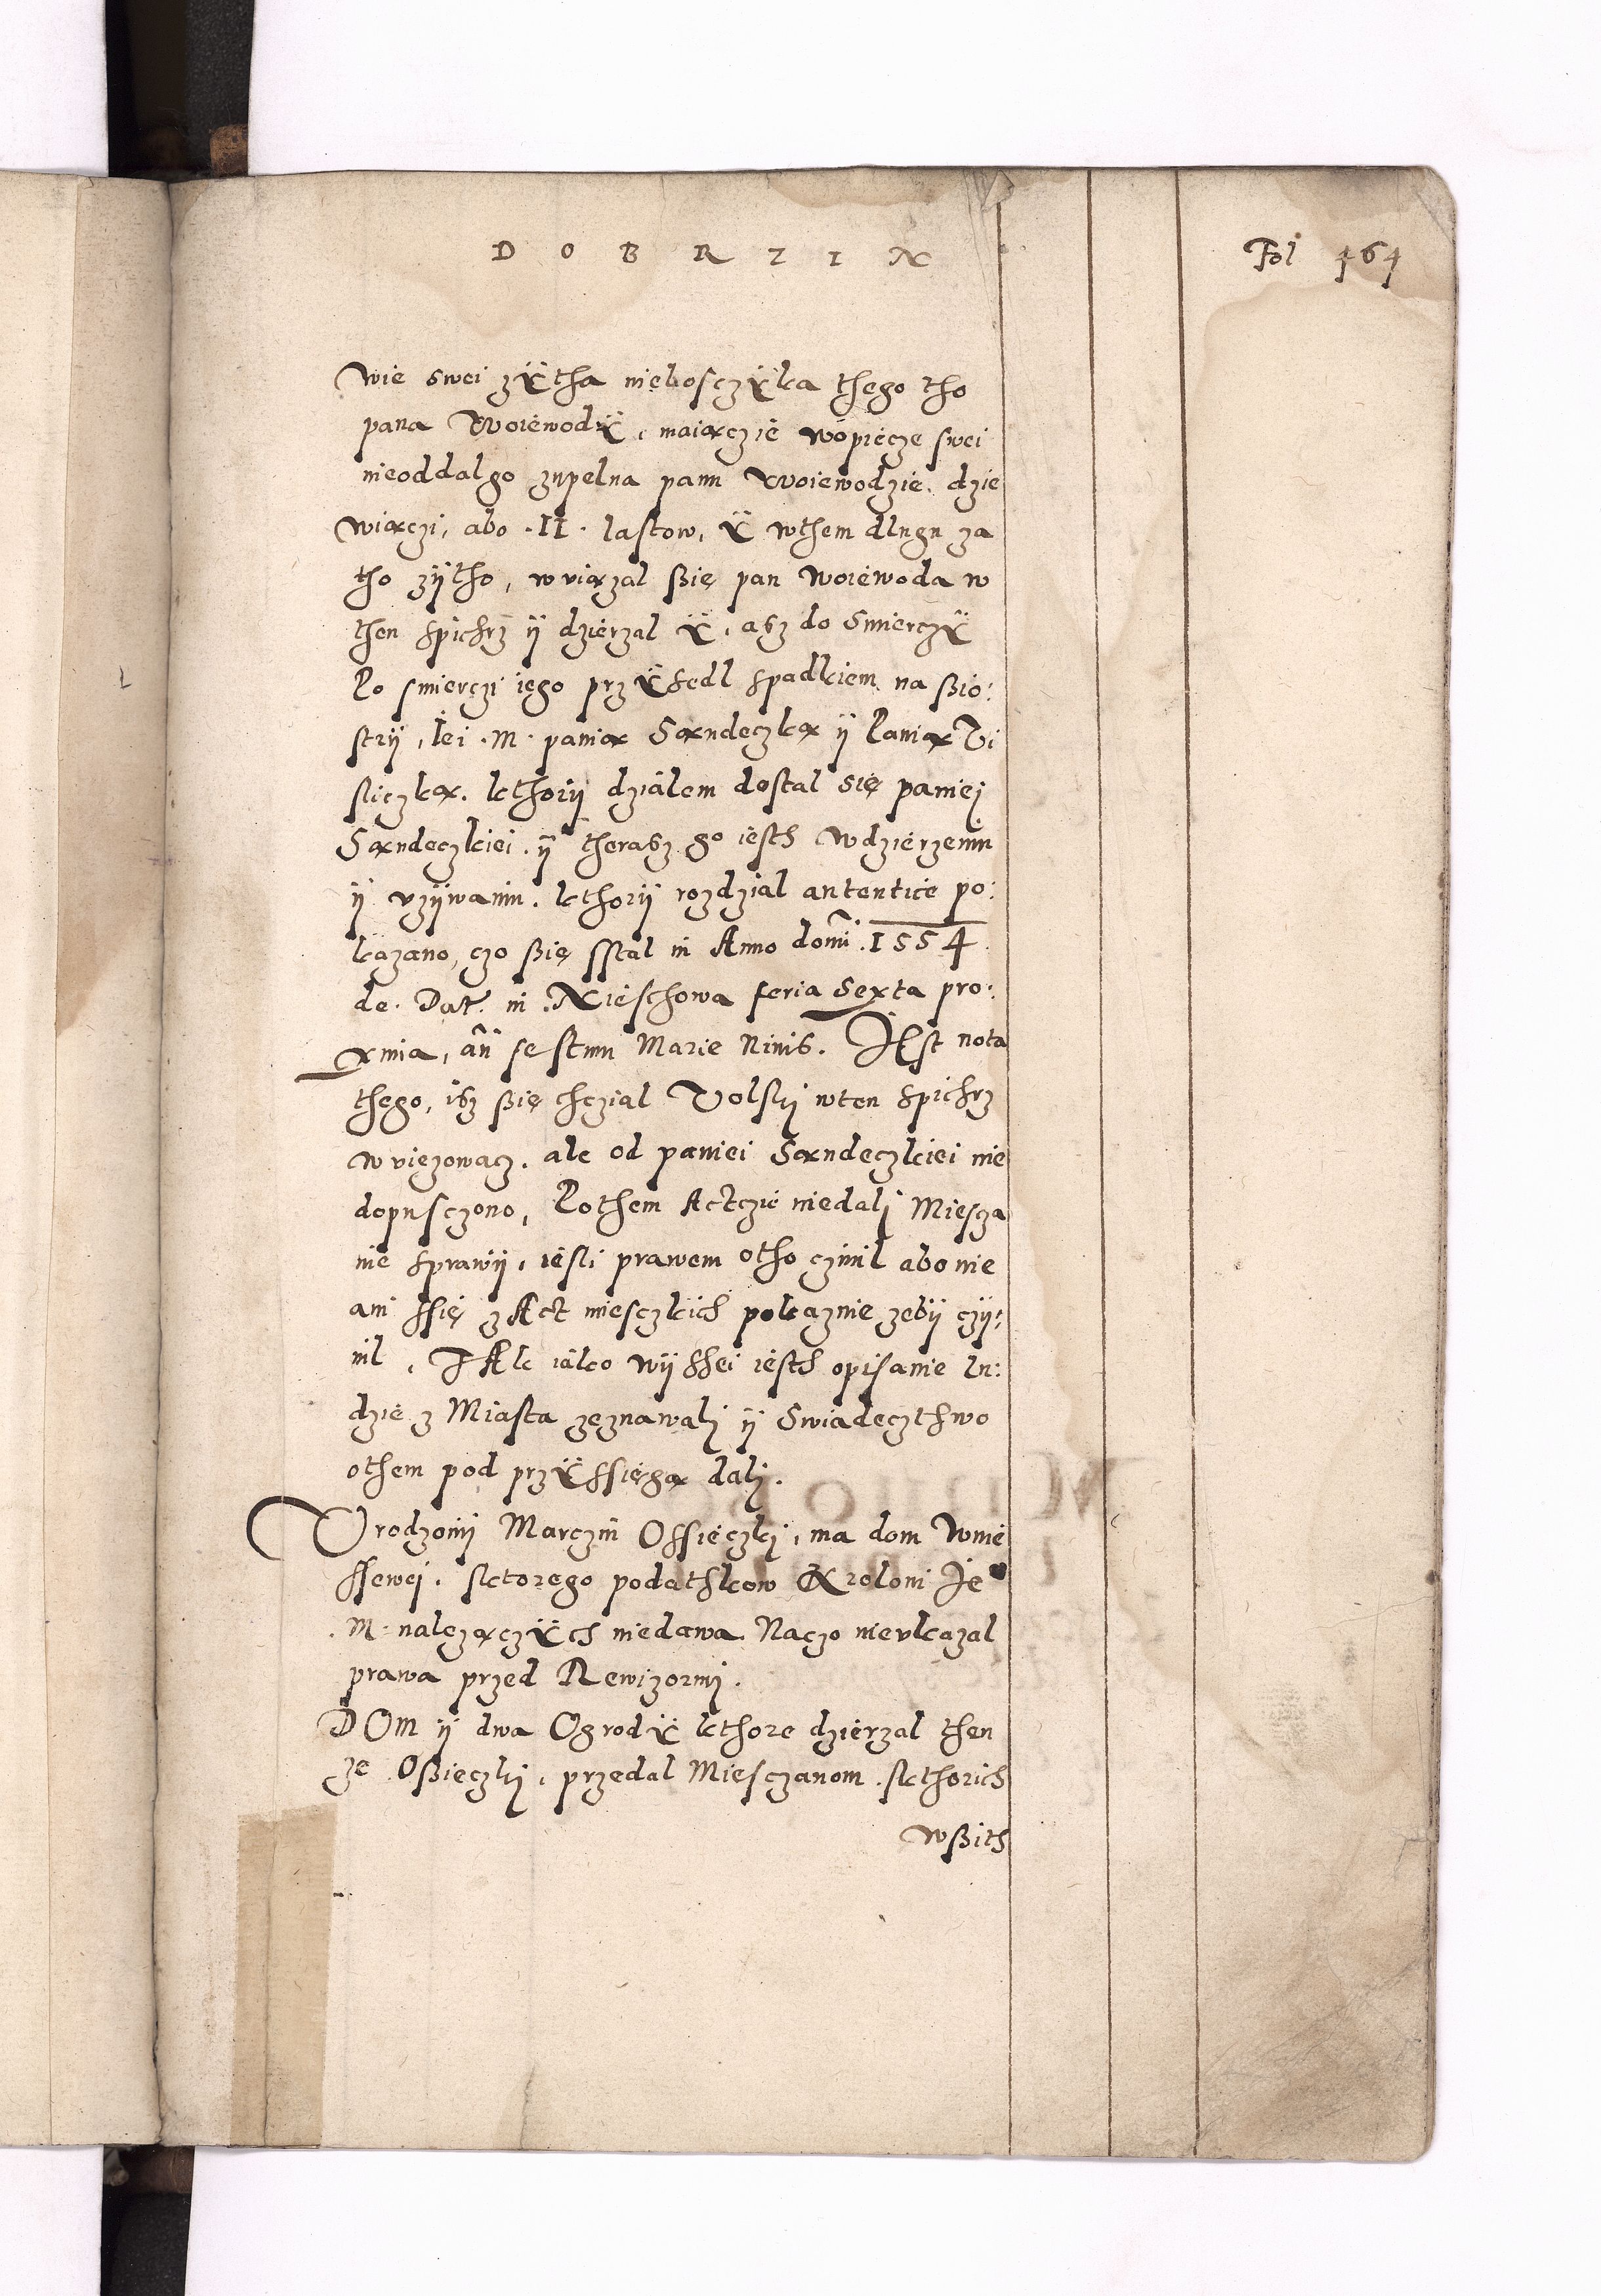 D O B R Z I N
Fol 464
wie swei zÿtha niebosczÿka thego tho
pana Woiewodÿ, maiączie wopiecze swei
nieoddalgo zupelna panu woiewodzie, dzie
wiączi, abo .II. lastow, ÿ wthem dlugu za
tho zÿtho, wwiązal ßię pan woiewoda w
then spichrz ÿ dzierzal ÿ, asz do smierczÿ
Po smierczi iego przÿsedl spadkiem na ßio:
strÿ, Iei .M. panią Sąndeczką ÿ Panią Vi
sliczką. kthorÿ dzialem dostal się paniej
Sąndeczkiei. ÿ therasz go iesth wdzierzeniu
ÿ vzÿwaniu. kthorÿ rozdzial autentice po:
kazano, czo ßię sstal in Anno domi .1554.
de. Dat. in .Nieschowa feria sexta pro:
xmia, añ festum Marie Niuis. JEst nota
thego, isz ßię chczial Volskj wten spichrz
wwięzowacz. ale od paniei Sąndeczkiei nie
dopusczono, Pothem Actczie niedalj Miescza
nie sprawÿ, iesli prawem otho czinil abo nie
ani ssię z Act miesczkich pokaznie zebÿ czÿ:
nil, TAk iako wÿssei iesth opisanie lu:
dzie z Miasta zeznawalj ÿ swiadecztwo
othem pod przÿssięgą dalj.
Vrodzonij Marczin Ossieczkj, ma dom wmie
sscwej. sktorego podathkow Kroloni Je
.M. należączÿch niedawa. Naczo nieukazal
prawa przed Rewizormj.
DOm ÿ dwa Ogrodÿ kthore dzierzal then
ze Oßieczkj, przedal Miesczanom. skthorich
wßith